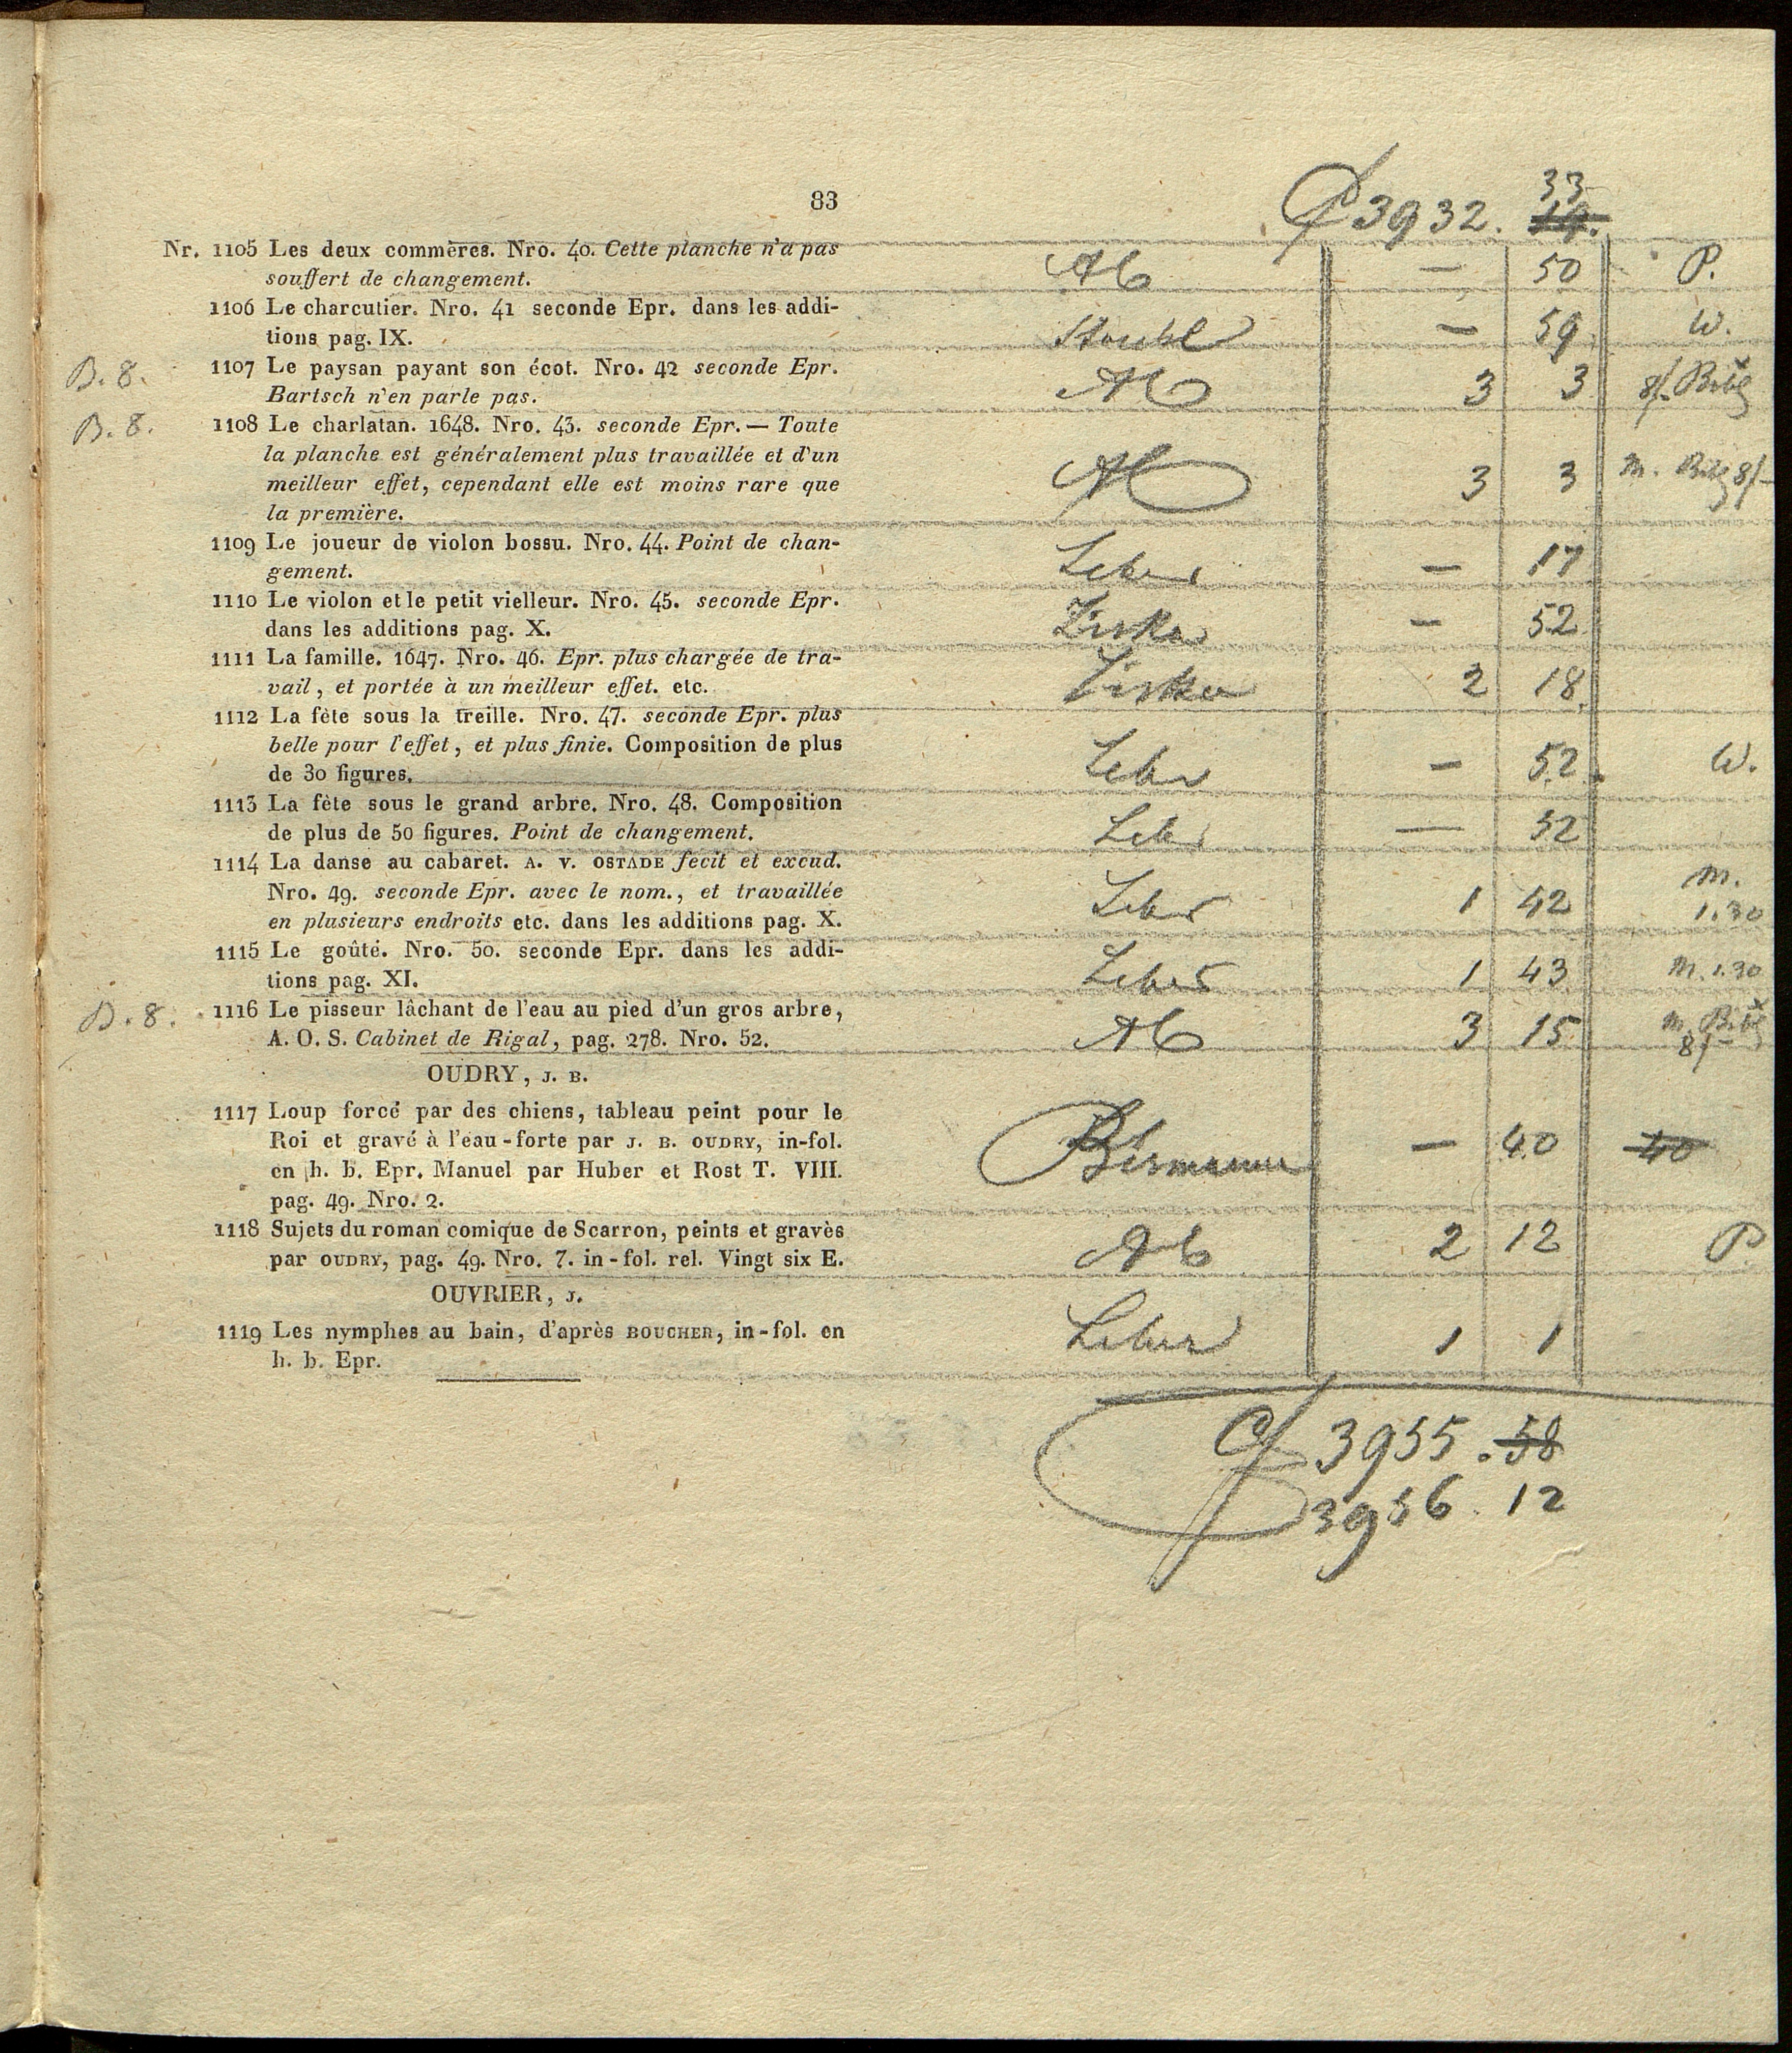 83
3932. 33
19.
Nr. 1105 Les deux commères. Nro. 40. Cette planche n'a pas
souffert de changement.
— 50 P.
1106 Le charcutier. Nro. 41 seconde Epr. dans les addi-
tions pag. IX.
— 59 W.
B. 8. 1107 Le paysan payant son écot. Nro. 42 seconde Epr.
Bartsch n'en parle pas.
3 3
B. 8. 1108 Le charlatan. 1648. Nro. 43. seconde Epr. — Toute
la planche est généralement plus travaillée et d'un
meilleur effet, cependant elle est moins rare que
la première.
3 3 m.
1109 Le joueur de violon bossu. Nro. 44. Point de chan-
gement.
— 17
1110 Le violon et le petit vielleur. Nro. 45. seconde Epr.
dans les additions pag. X.
Ziska — 52
1111 La famille. 1647. Nro. 46. Epr. plus chargée de tra-
vail, et portée à un meilleur effet. etc.
Ziska 2 18
1112 La fête sous la treille. Nro. 47. seconde Epr. plus
belle pour l'effet, et plus finie. Composition de plus
de 30 figures.
— 52 W.
1113 La fête sous le grand arbre. Nro. 48. Composition
de plus de 50 figures. Point de changement.
— 52
1114 La danse au cabaret. A. V. OSTADE fecit et excud.
Nro. 49. seconde Epr. avec le nom., et travaillée
en plusieurs endroits etc. dans les additions pag. X.
1 42 m.
1.30
1115 Le goûté. Nro. 50. seconde Epr. dans les addi-
tions pag. XI.
1 43 m. 1.30
B. 8. 1116 Le pisseur lâchant de l'eau au pied d'un gros arbre,
A. O. S. Cabinet de Rigal, pag. 278. Nro. 52.
3 15 m.
OUDRY, J. B.
1117 Loup forcé par des chiens, tableau peint pour le
Roi et gravé à l'eau-forte par J. B. OUDRY, in-fol.
en h. b. Epr. Manuel par Huber et Rost T. VIII.
pag. 49. Nro. 2.
— 40 40
1118 Sujets du roman comique de Scarron, peints et gravès
par OUDRY, pag. 49. Nro. 7. in-fol. rel. Vingt six E.
2 12 P
OUVRIER, J.
1119 Les nymphes au bain, d'après BOUCHER, in-fol. en
h. b. Epr.
1 1
3955. 58
3956. 12